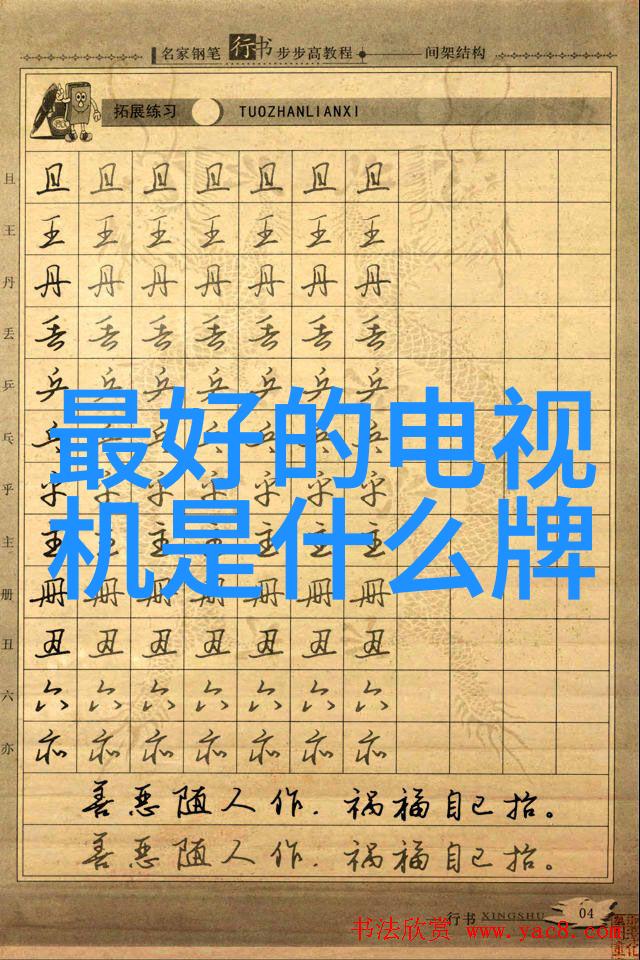 名家钢笔行书步步高教程 间架结构
拓展练习 TUOZHANLIANXI
且 且 且 且 且 且 且 且
王 王 王 王 王 王 王 王
丹 丹 丹 丹 丹 丹 丹 丹
丢 丢 丢 丢 丢 丢 丢 丢
乒 乒 乒 乒 乒 乒 乒 乒
最好的电视
乓 乓 乓 乓 乓 乓 乓
乎 乎 乎 乎 乎 乎 乎 乎
机是什么牌
主 主 主 主 主 主 主
册 册 册 册 册 册 册 册
丑 丑 丑 丑 丑 丑 丑 丑
六 六 六 六 六 六 六 六
亦 亦 亦 亦 亦 亦 亦 亦
善恶随人作，祸福自己招。
善恶随人作，祸福自己招。
行书 XINGSHU 04
书法欣赏 www.yac8.com